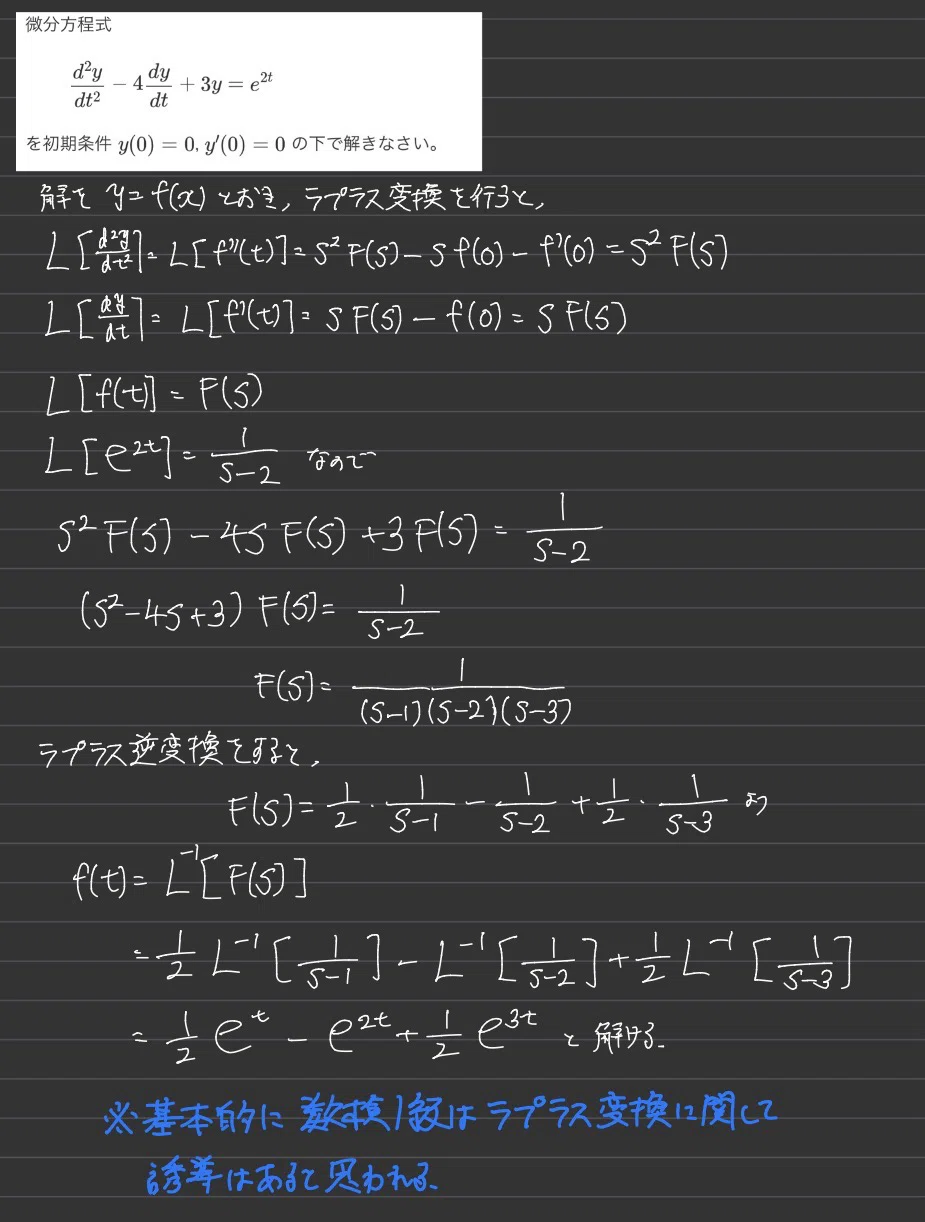 微分方程式
d²y/dt² − 4 dy/dt + 3y = e^{2t}
を初期条件 y(0) = 0, y′(0) = 0 の下で解きなさい。
解を y = f(x) とおき, ラプラス変換を行うと,
L[d²y/dt²] = L[f''(t)] = S²F(S) − Sf(0) − f'(0) = S²F(S)
L[dy/dt] = L[f'(t)] = SF(S) − f(0) = SF(S)
L[f(t)] = F(S)
L[e^{2t}] = 1/(S−2) なので
S²F(S) − 4SF(S) + 3F(S) = 1/(S−2)
(S²−4S+3) F(S) = 1/(S−2)
F(S) = 1/((S−1)(S−2)(S−3))
ラプラス逆変換をすると,
F(S) = 1/2 · 1/(S−1) − 1/(S−2) + 1/2 · 1/(S−3) より
f(t) = L⁻¹[F(S)]
= 1/2 L⁻¹[1/(S−1)] − L⁻¹[1/(S−2)] + 1/2 L⁻¹[1/(S−3)]
= 1/2 e^t − e^{2t} + 1/2 e^{3t} と解ける.
※基本的に数検1級はラプラス変換に関して
誘導はあると思われる.